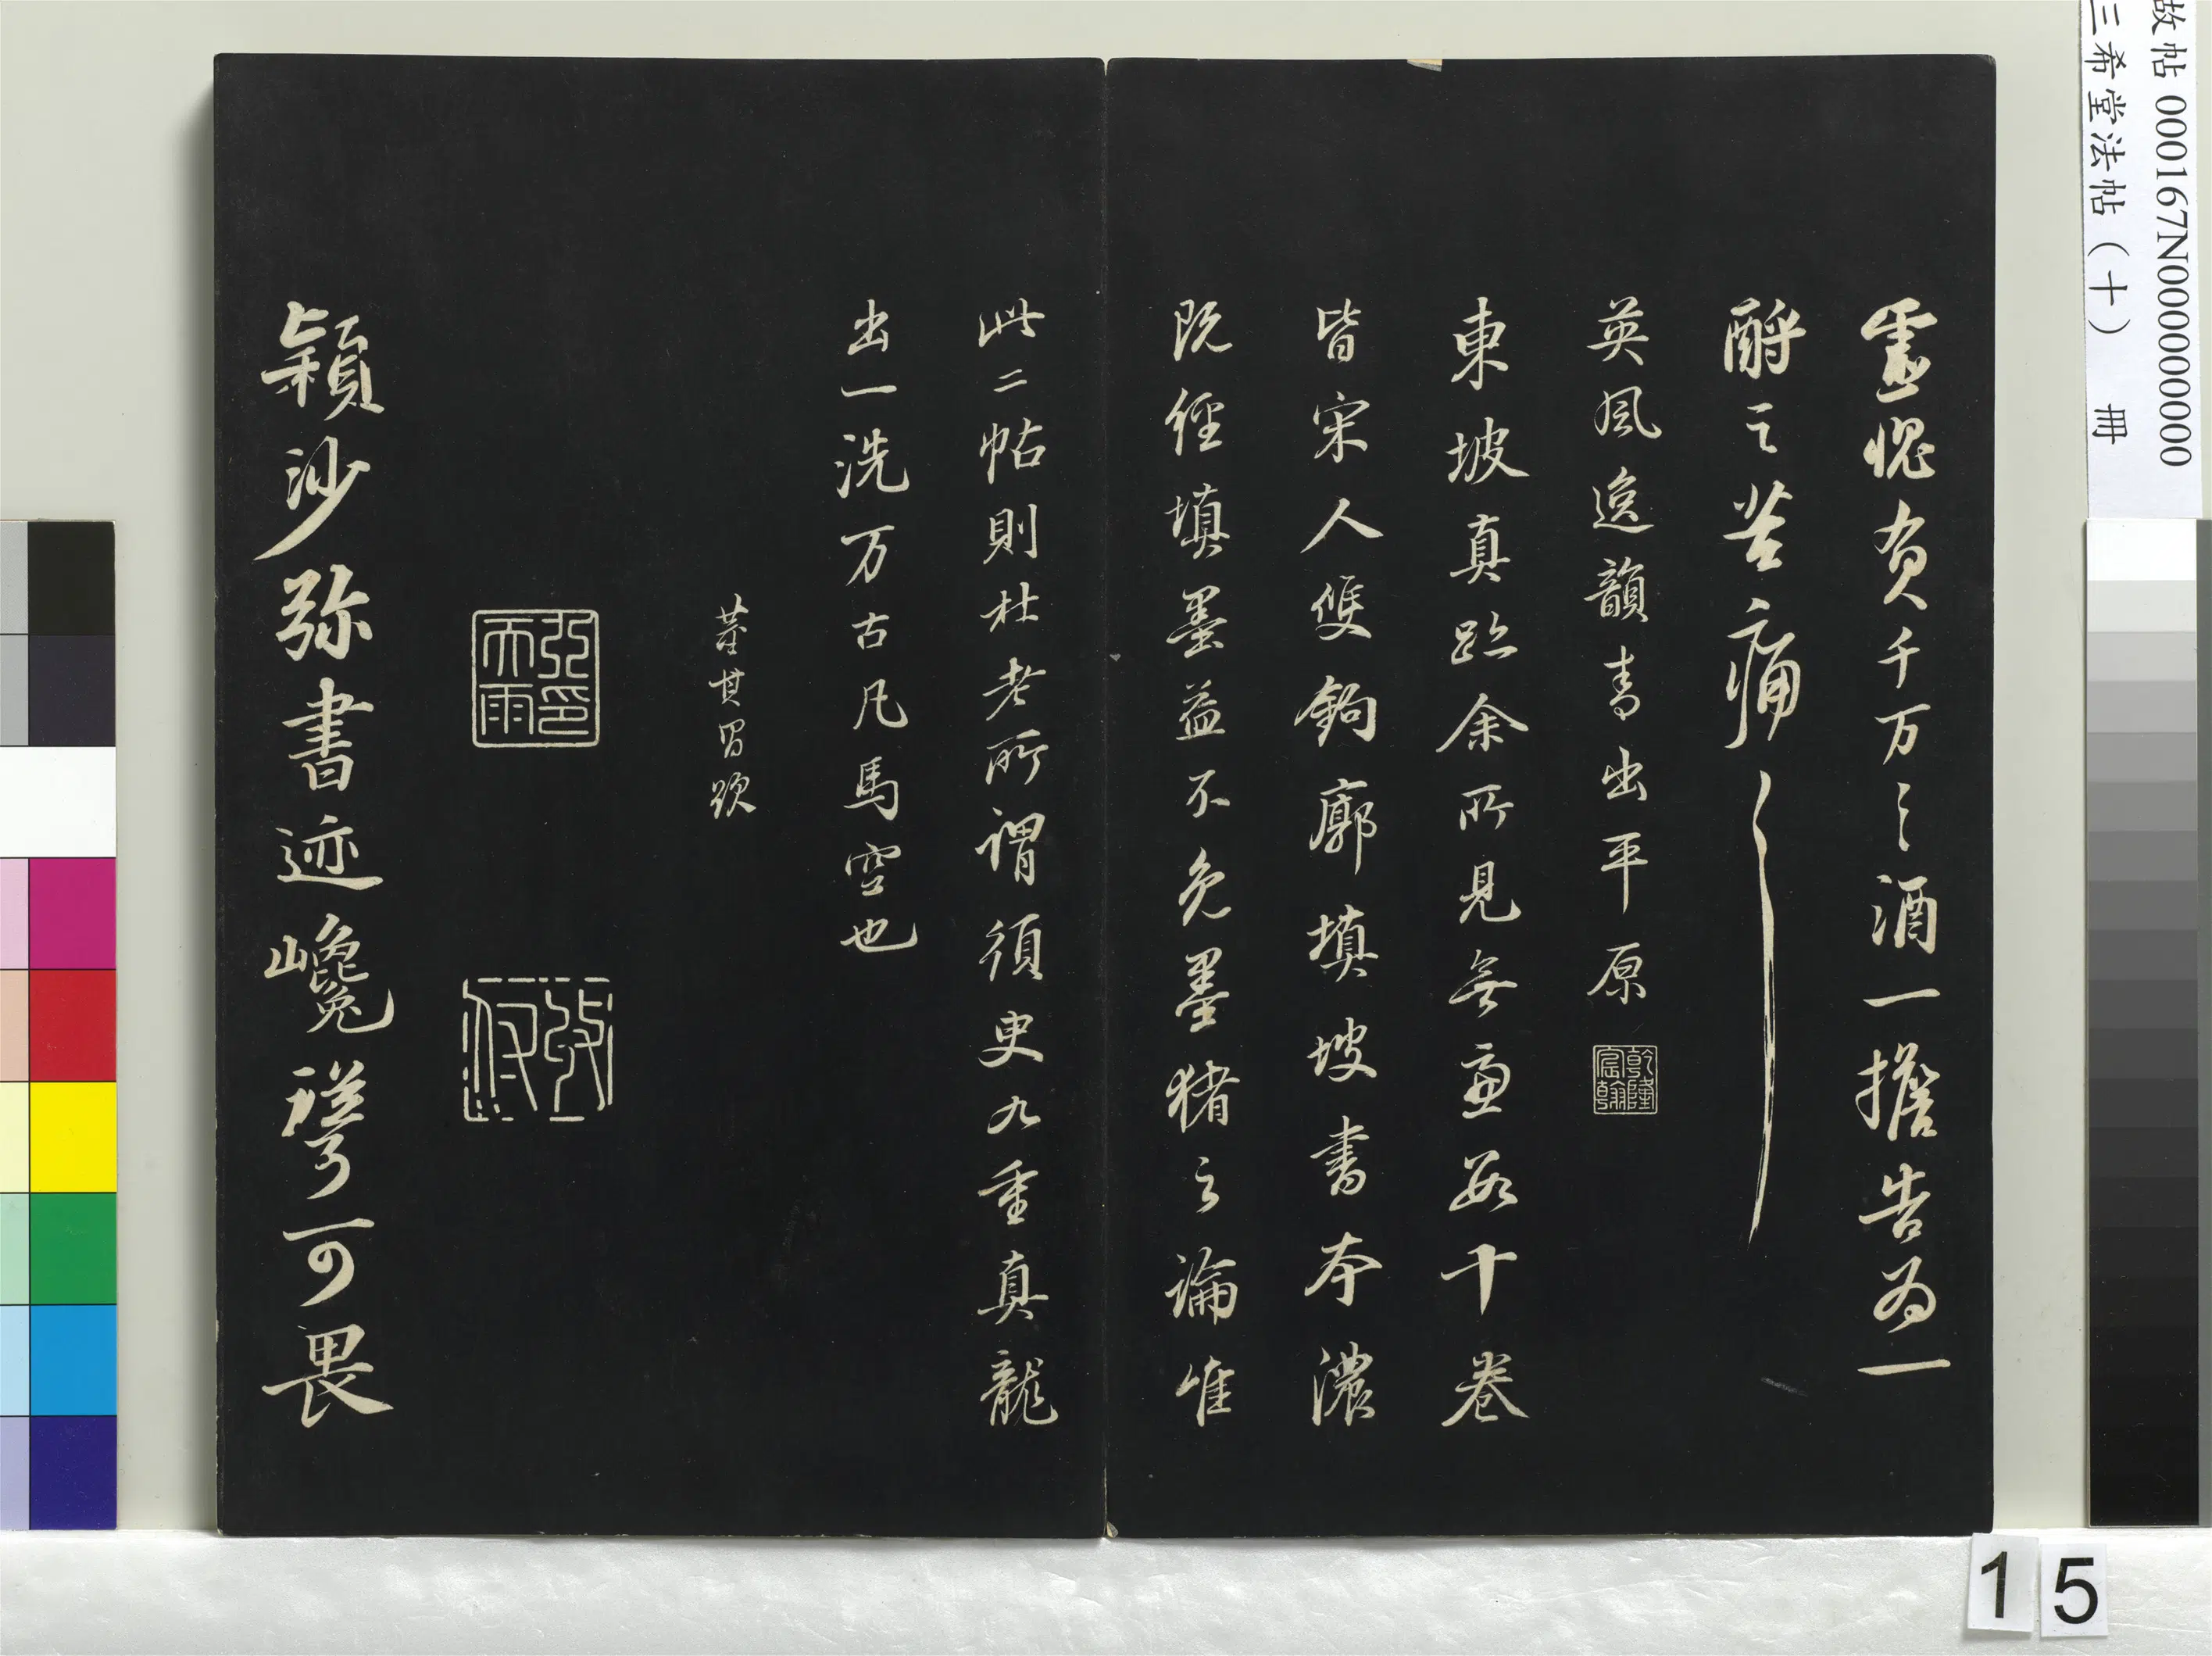 故帖 000167N000000000
三希堂法帖（十） 册
愧負千万〻酒一擔告為一
酹之苦痛〻
英風逸韻高出平原
乾隆宸翰
東坡真跡余所見無慮數十卷
皆宋人雙鉤廓填坡書本濃
既經填墨益不免墨猪之論唯
此二帖則杜老所謂須臾九重真龍
出一洗万古凡馬空也
董其昌題
穎沙弥書迹巉聳可畏
15